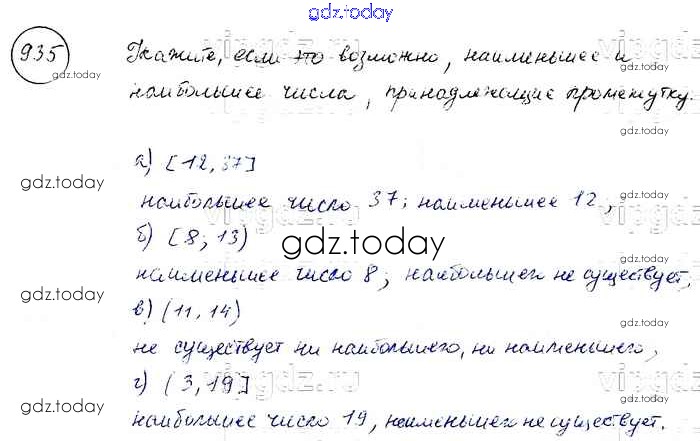 gdz.today
935
Укажите, если это возможно, наименьшее и
наибольшее числа, принадлежащие промежутку.
gdz.today
gdz.today
vipgdz.ru
а) [12, 37]
gdz.today
наибольшее число 37; наименьшее 12,
gdz.today
vipgdz.ru
б) [8; 13)
gdz.today
наименьшее число 8; наибольшего не существует,
gdz.today
в) (11, 14)
gdz.today
не существует ни наибольшего, ни наименьшего,
г) (3, 19]
vipgdz.ru
vipgdz.ru
gdz.today
наибольшее число 19, наименьшего не существует.
gdz.today